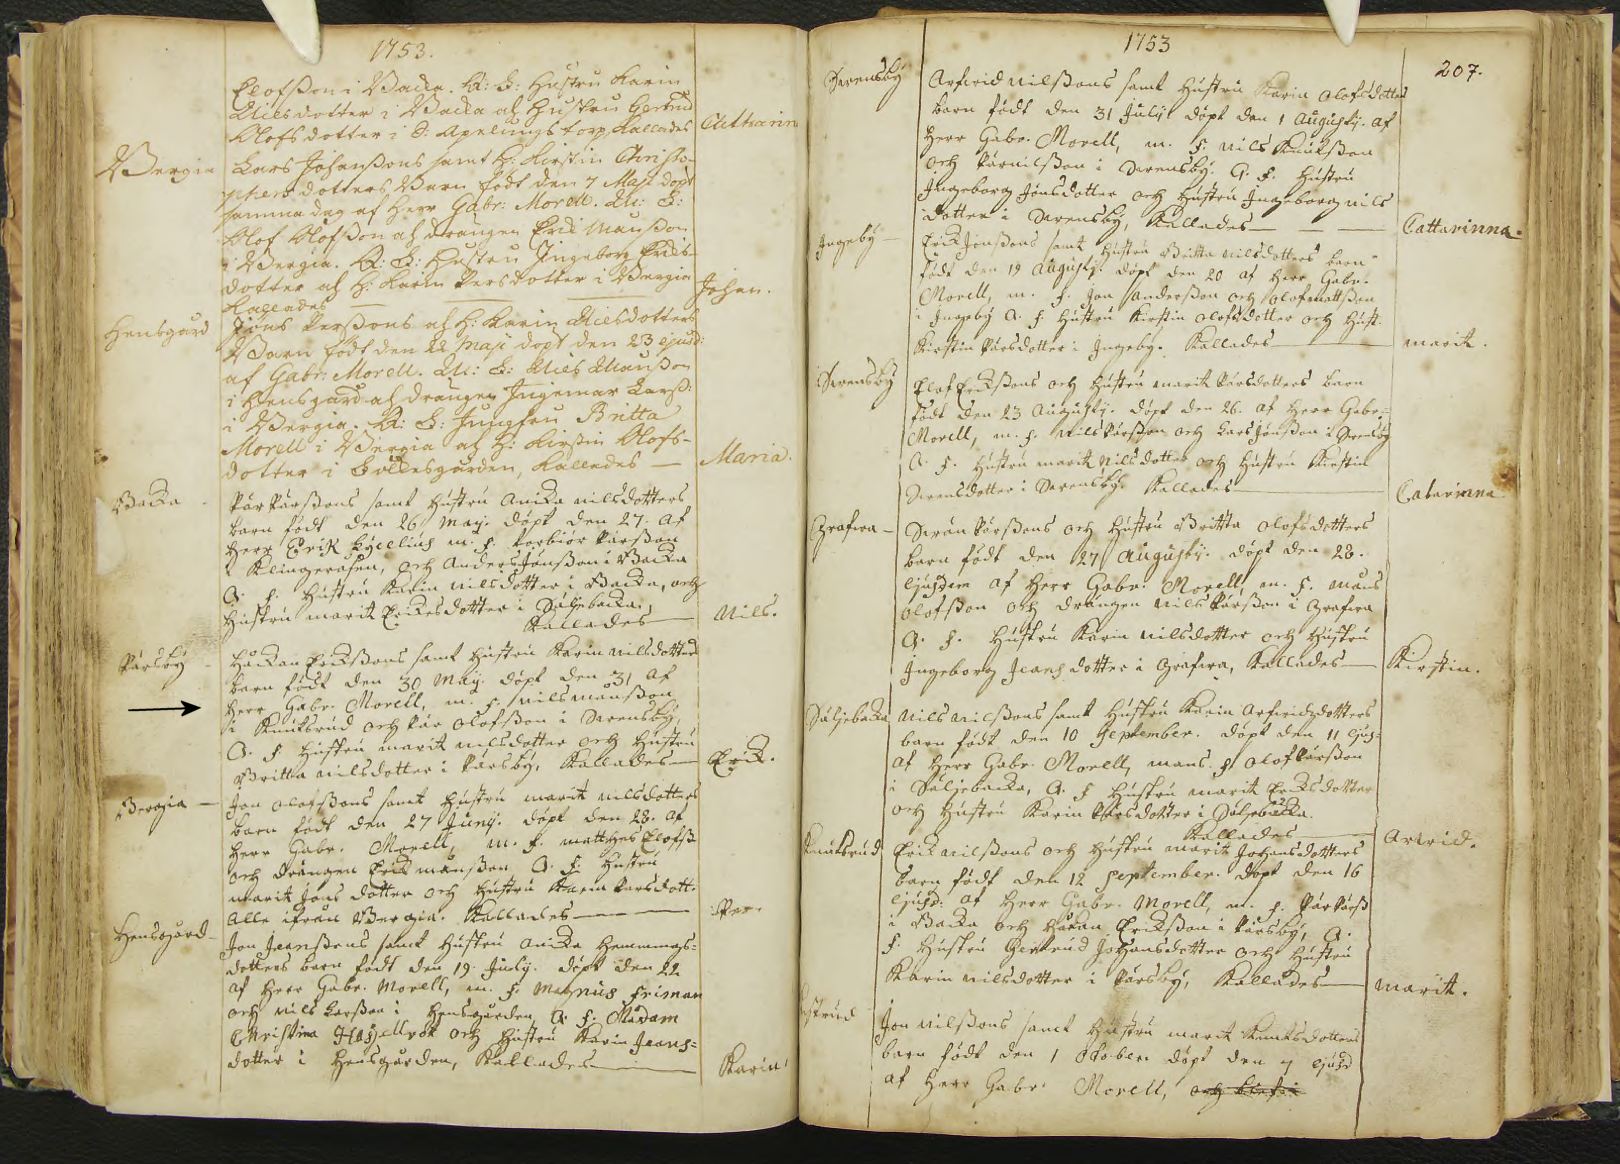 1753.
Elofßon i Backa. Q: G: Hustru Karin
Nilsdotter i Backa af hustru Gertrud
Olofsdotter i S: Apelungstorp Kallades Cattarin
Bergia Lars Johanßons samt H: Kirstin Christo-
phersdotters Barn födt den 7 Maji döpt
samma dag af Herr Gabr: Morell. M: G:
Olof Olofßon af drängen Erik Manßon
i Bergia. Q: G: Hustru Ingeborg Eriks-
dotter af H: Karin Persdotter i Bergia
Kallades Johan.
Hensgård Jöns Perßons af H: Karin Nilsdotters
Barn födt den 22 Maji döpt den 23 ejusd:
af Gabr: Morell. M: G: Nils Manßon
i Hensgård af drängen Ingemar Larß:
i Bergia. Q: G: Jungfru Britta
Morell i Bergia af H: Kirstin Olofs-
dotter i Gålkesgården, Kallades — Maria.
Backa Pär Pärßons samt Hustru Anika Nilsdotters
barn födt den 26 Maij. döpt den 27. af
Herr Erik Kyellius m: f: Torbiör Pärßon
i Klingeråsen, och Anders Jönßon i Backa
Q. f: Hustru Karin Nilsdotter i Backa, och
Hustru Marit Ericksdotter i Säljebacka,
Kallades — Nils.
Pärsby Håckan Erickßons samt Hustru Karin Nilsdotters
barn födt den 30 Maij. döpt den 31 af
Herr Gabr. Morell, m. f. Nils Månßon
i Knutsrud och Pär Olofßon i Swensby,
Q. f Hustru Marit Nilsdotter och Hustru
Britta Nilsdotter i Pärsby, Kallades — Erick.
Bergia — Jon Olofßons samt Hustru Marit Nilsdotters
barn födt den 27 Junij. döpt den 28. af
Herr Gabr. Morell, m. f. Matthes Elofß
och drängen Erick Månßon Q. f. Hustru
Marit Jons dotter och Hustru Karin Larsdott.
Alle ifrån Bergia. Kallades — Per.
Hensgård — Jon Jeanßons samt Hustru Anika Hemmings=
dotters barn födt den 19 Julij. döpt den 22
af Herr Gabr. Morell, m. f. Magnus Friman
och Nils Larßon i Hensgården, Q. f. Madam
Christina och Hustru Karin Jeans=
dotter i Hensgården, Kallades — Karin
1753
207.
Swensby Arfwid Nilßons samt Hustru Karin Olofsdotters
barn födt den 31 Julij döpt den 1 Augustij. af
Herr Gabr. Morell, m. f. Nils Knutßon
och Pär Nilßon i Swensby. Q. f. Hustru
Ingeborg Jonsdotter och Hustru Ingeborg Nils
dotter i Swensby, Kallades — Cattarinna.
Ingeby — Erick Jonßons samt Hustru Britta Nilsdotters barn
födt den 19 Augustij. döpt den 20 af Herr Gabr.
Morell, m. f. Jon Anderßon och Olof Mattßon
i Ingeby Q. f. Hustru Kirstin Olofsdotter och Hust.
Kirstin Pärsdotter i Ingeby. Kallades — Marit.
Swensby Elof Erickßons och Hustru Marit Pärsdotters barn
födt den 23 Augustij. döpt den 26. af Herr Gabr=
Morell, m. f. Nils Pärßon och Lars Jonßon i Swensby
Q. f. Hustru Marit Nilsdotter och Hustru Kirstin
Swensdotter i Swensby. Kallades — Catarinna
Grafwa — Swän Pärßons och Hustru Britta Olofsdotters
barn födt den 27 Augustij. döpt den 28.
Ejusdem af Herr Gabr. Morell, m. f. Måns
Olofßon och drängen Nils Pärßon i Grafwa
Q. f. Hustru Karin Nilsdotter och Hustru
Ingeborg Jeansdotter i Grafwa, Kallades — Kirstin.
Säljebacka Nils Nilßons samt Hustru Karin Arfwidzdotters
barn födt den 10 September. döpt den 11 Ejus=
af Herr Gabr. Morell, mans. f Olof Pärßon
i Säljebacka, Q. f Hustru Marit Ericksdotter
och Hustru Karin Pärsdotter i Säljebacka.
Kallades — Arwid.
Knutsrud Erick Nilßons och Hustru Marit Johansdotters
barn födt den 12 September. döpt den 16
Ejusd: af Herr Gabr. Morell, m. f. Pär Pärß
i Backa och Håkan Erickßon i Pärsby, Q.
f. Hustru Gertrud Johansdotter och Hustru
Karin Nilsdotter i Pärsby, Kallades — Marit.
Jon Nilßons samt Hustru Marit Knutsdotters
barn födt den 1 October döpt den 7 Ejusd
af Herr Gabr. Morell,